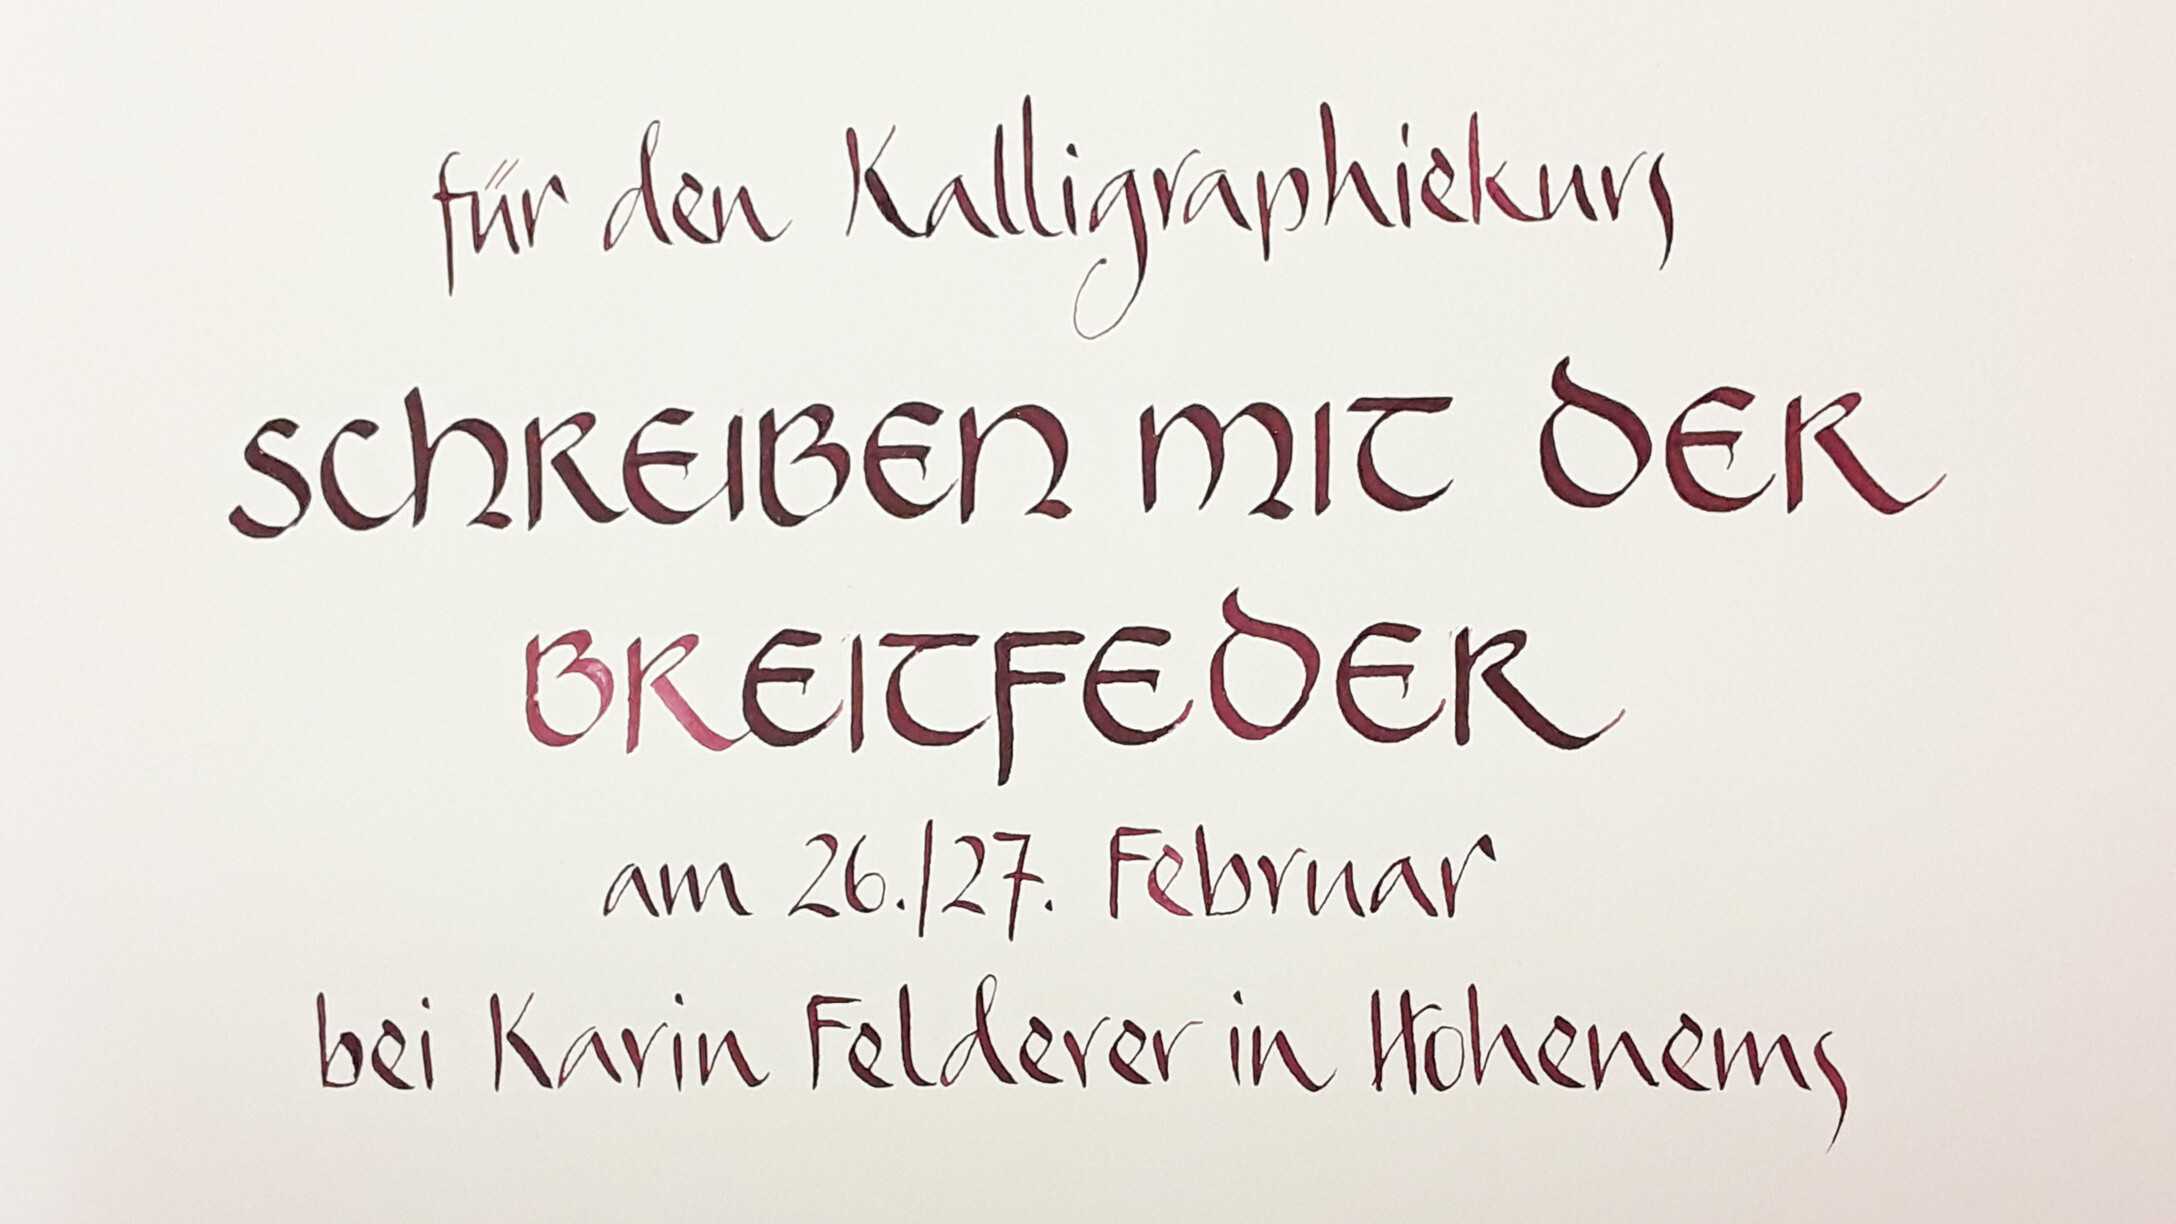 für den Kalligraphiekurs
SCHREIBEN MIT DER
BREITFEDER
am 26./27. Februar
bei Karin Felderer in Hohenems